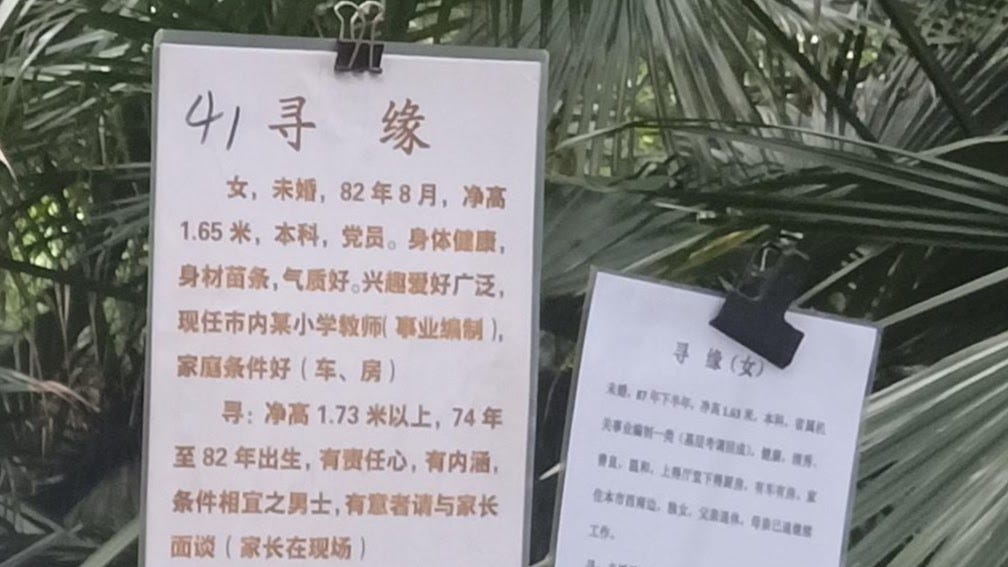 41 寻 缘
女，未婚，82年8月，净高
1.65米，本科，党员。身体健康，
身材苗条，气质好。兴趣爱好广泛，
现任市内某小学教师（事业编制），
家庭条件好（车、房）
寻：净高1.73米以上，74年
至82年出生，有责任心，有内涵，
条件相宜之男士，有意者请与家长
面谈（家长在现场）
寻 缘（女）
未婚，87年下半年，净高1.63米，本科，省属机
关事业编制一类（基层考调回成），健康，
善良，温和，上得厅堂下得厨房，有车有房，家
住本市西南边，独女，父亲退休，母亲已退继续
工作。